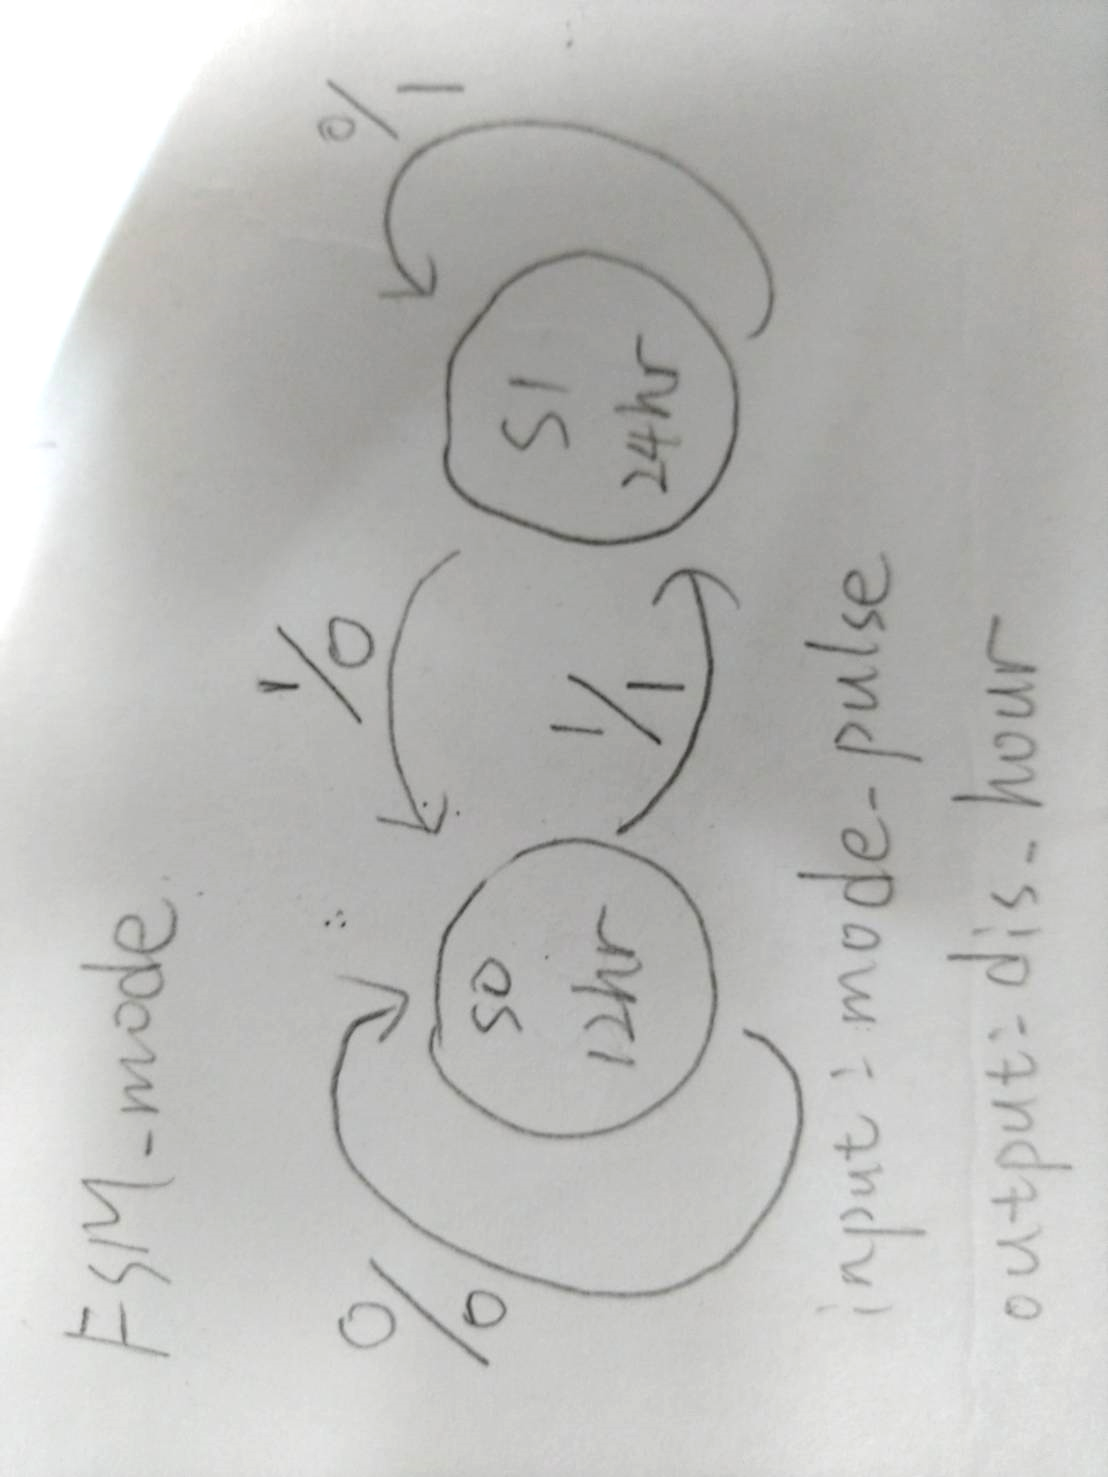 FSM-mode
1/0
0/0
0/1
S0
12hr
1/1
S1
24hr
input: mode-pulse
output: dis-hour